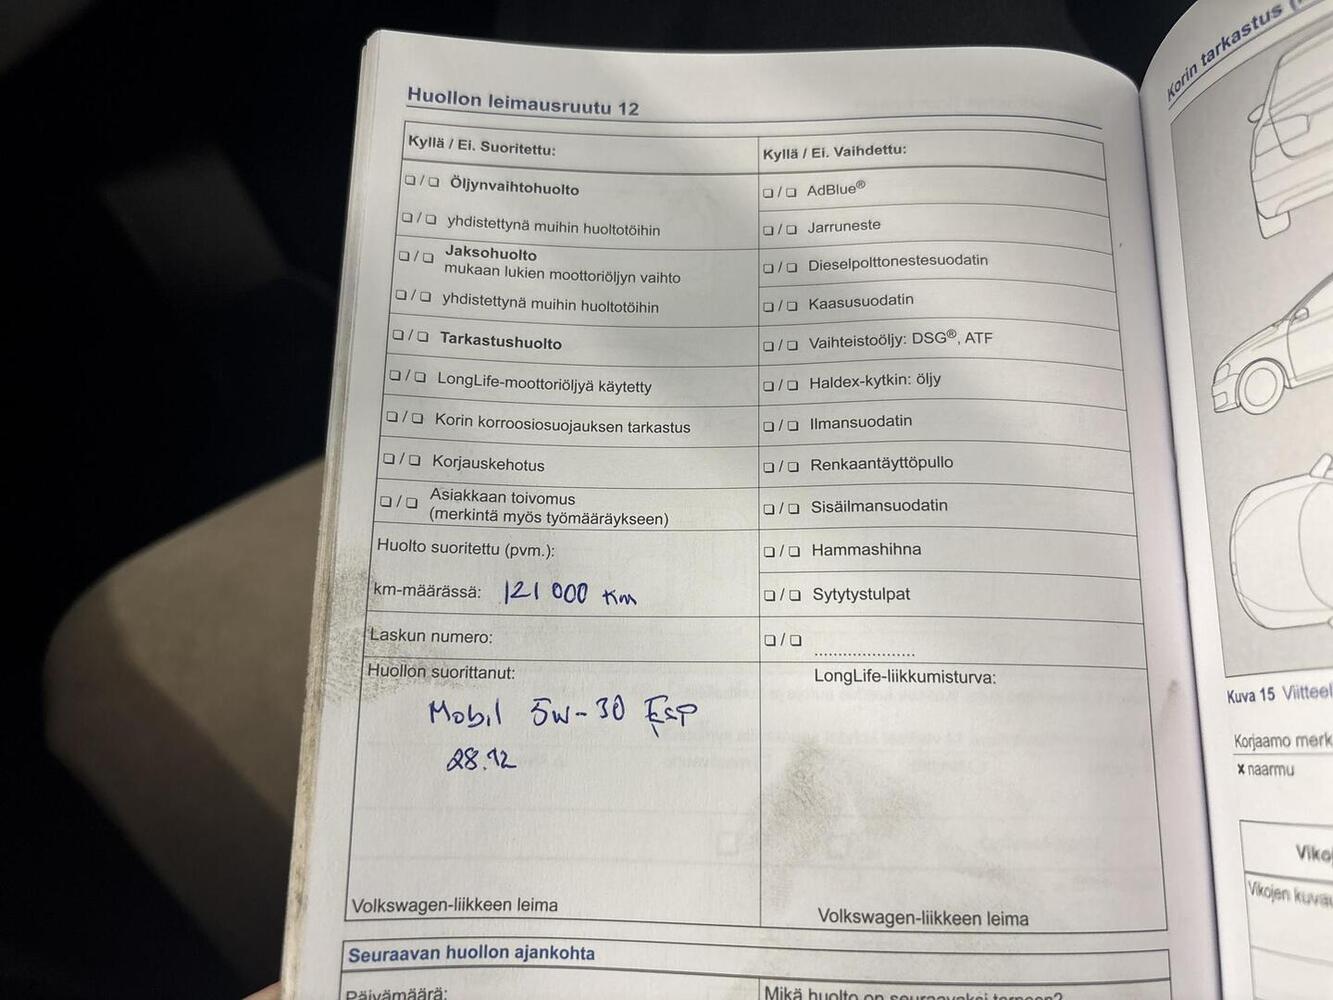 Huollon leimausruutu 12
Kyllä / Ei. Suoritettu:
❏ / ❏ Öljynvaihtohuolto
❏ / ❏ yhdistettynä muihin huoltotöihin
❏ / ❏ Jaksohuolto
mukaan lukien moottoriöljyn vaihto
❏ / ❏ yhdistettynä muihin huoltotöihin
❏ / ❏ Tarkastushuolto
❏ / ❏ LongLife-moottoriöljyä käytetty
❏ / ❏ Korin korroosiosuojauksen tarkastus
❏ / ❏ Korjauskehotus
❏ / ❏ Asiakkaan toivomus
(merkintä myös työmääräykseen)
Huolto suoritettu (pvm.):
km-määrässä: 121 000 km
Laskun numero:
Huollon suorittanut:
Mobil 5w-30 ESP
28.12
Volkswagen-liikkeen leima
Kyllä / Ei. Vaihdettu:
❏ / ❏ AdBlue®
❏ / ❏ Jarruneste
❏ / ❏ Dieselpolttonestesuodatin
❏ / ❏ Kaasusuodatin
❏ / ❏ Vaihteistoöljy: DSG®, ATF
❏ / ❏ Haldex-kytkin: öljy
❏ / ❏ Ilmansuodatin
❏ / ❏ Renkaantäyttöpullo
❏ / ❏ Sisäilmansuodatin
❏ / ❏ Hammashihna
❏ / ❏ Sytytystulpat
❏ / ❏ .....................
LongLife-liikkumisturva:
Volkswagen-liikkeen leima
Seuraavan huollon ajankohta
Päivämäärä:
Mikä huolto on seuraavaksi tarpeen?
Korin tarkastus
Kuva 15
Korjaamo
x naarmu
Vikojen